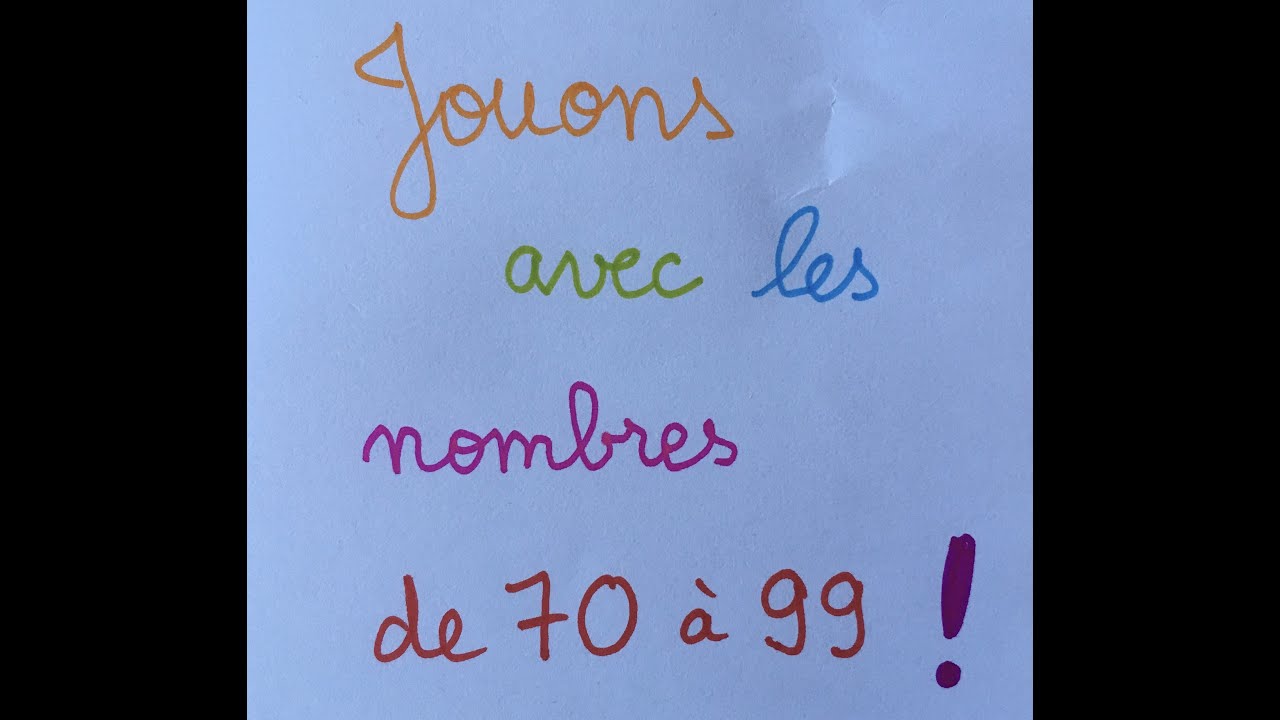 Jouons
avec les
nombres
de 70 à 99 !